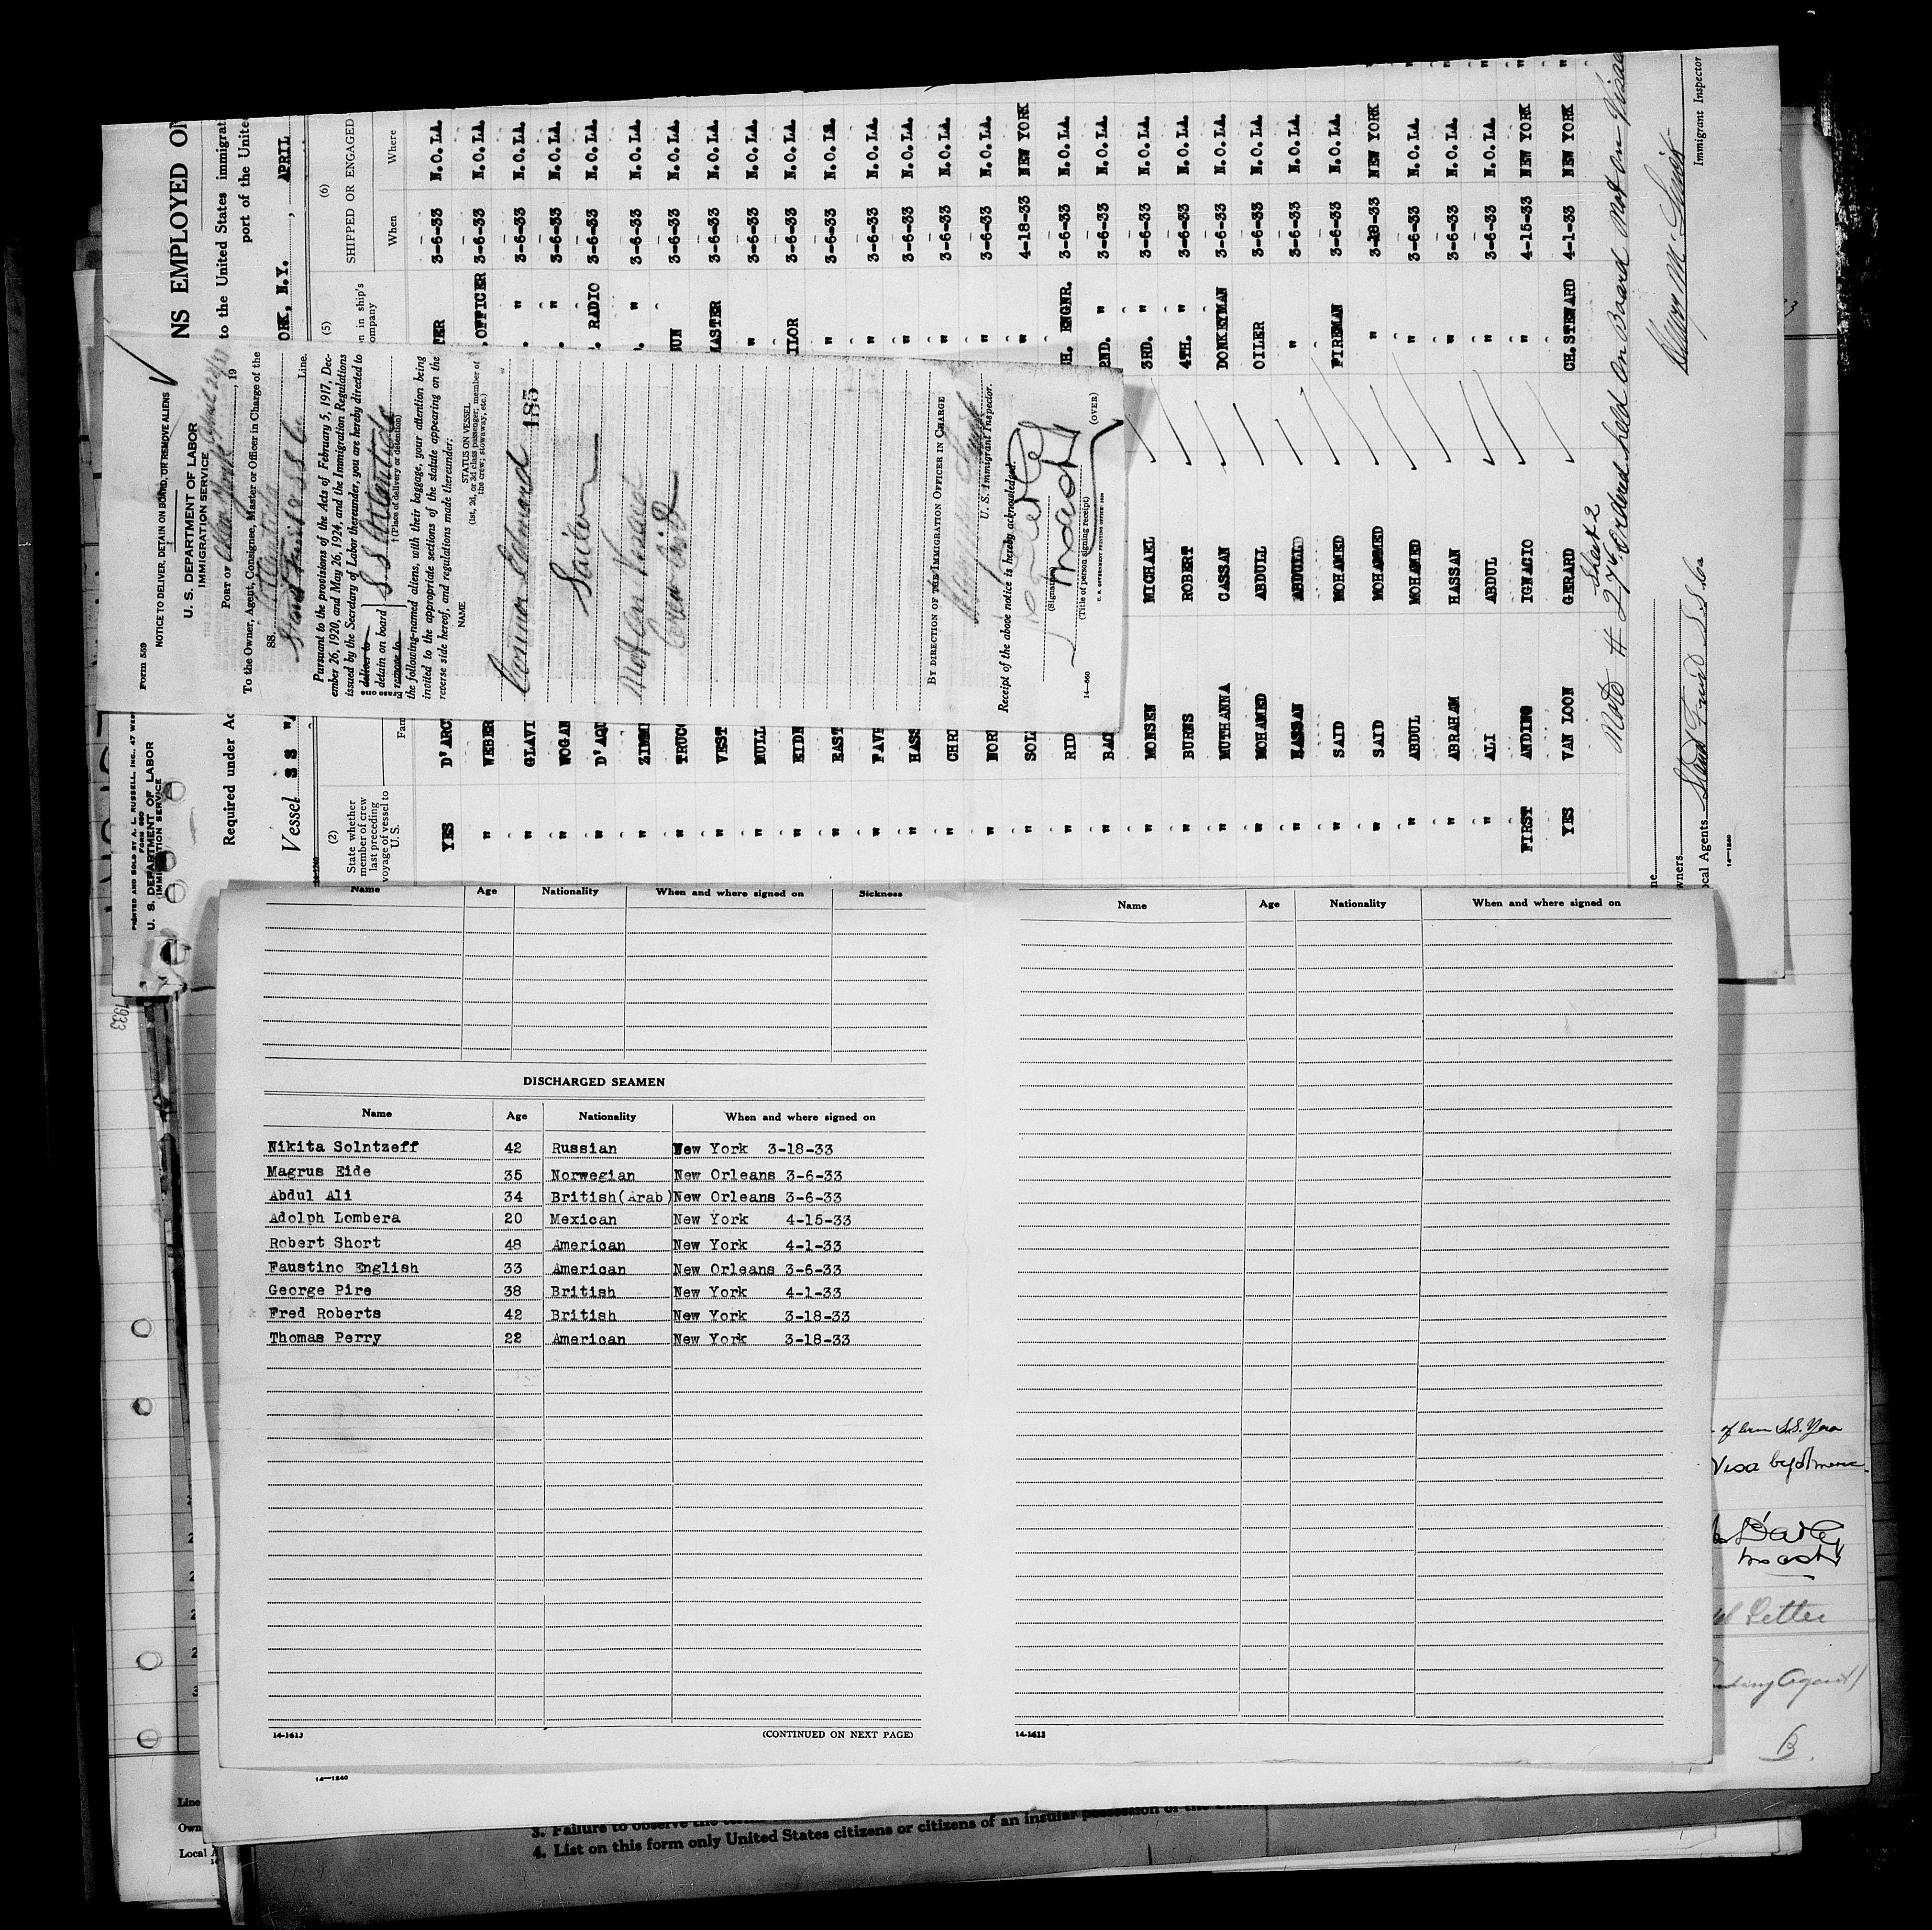 Form 559
NOTICE TO DELIVER, DETAIN ON BOARD, OR REMOVE ALIENS
U. S. DEPARTMENT OF LABOR
IMMIGRATION SERVICE
PORT OF New York, April 24/33, 19
To the Owner, Agent, Consignee, Master or Officer in Charge of the
SS. Atlantida
Stand Fruit & S S Co. Line.
Pursuant to the provisions of the Acts of February 5, 1917, Dec-
ember 26, 1920, and May 26, 1924, and the Immigration Regulations
issued by the Secretary of Labor thereunder, you are hereby directed to
Erase one
deliver to
detain on board
remove to
S S Atlantida
† (Place of delivery or detention)
the following-named aliens, with their baggage, your attention being
invited to the appropriate sections of the statute appearing on the
reverse side hereof, and regulations made thereunder:
NAME
STATUS ON VESSEL
(1st, 2d, or 3d class passenger, member of
the crew; stowaway, etc.)
Connor Edmond
185
Sailor
Not on Visaed
Crew list
BY DIRECTION OF THE IMMIGRATION OFFICER IN CHARGE
U. S. Immigrant Inspector.
Receipt of the above notice is hereby acknowledged.
(Signature)
Master
(Title of person signing receipt)
14—660
U. S. GOVERNMENT PRINTING OFFICE
(OVER)
PRINTED AND SOLD BY A. L. RUSSELL, INC., 47 WES
FORM 680
U. S. DEPARTMENT OF LABOR
IMMIGRATION SERVICE
NS EMPLOYED ON
Required under Ac
to the United States immigrati
port of the Unite
Vessel SS "A
ORK, N.Y. , APRIL
(2)
State whether
member of crew
last preceding
voyage of vessel to
U. S.
Fam
(5)
n in ship's
ompany
(6)
SHIPPED OR ENGAGED
When
Where
YES D'ARC TER 3-6-33 N.O.LA.
" WEBER .OFFICER 3-6-33 N.O.LA.
" GLAVI . " 3-6-33 N.O.LA.
" WOGAN . " 3-6-33 N.O.LA.
" D'AQU . RADIO 3-6-33 N.O.LA.
" ZIMM . " 3-6-33 N.O.LA.
" TRUCC SUN 3-6-33 N.O.LA.
" VEST MASTER 3-6-33 N.O.LA.
" MULL " 3-6-33 N.O.LA.
" EIDE ILOR 3-6-33 N.O.LA.
" EAST " 3-6-33 N.O.LA.
" FAVR " 3-6-33 N.O.LA.
" HASS " 3-6-33 N.O.LA.
" CHRI " 3-6-33 N.O.LA.
" NOR " 3-6-33 N.O.LA.
" SOL " 4-18-33 NEW YORK
" RID H. ENGNR. 3-6-33 N.O.LA.
" BAC 2ND. " 3-6-33 N.O.LA.
" MONSEN MICHAEL 3RD. " 3-6-33 N.O.LA.
" BURNS ROBERT 4TH. " 3-6-33 N.O.LA.
" MUTHANNA CASSAN DONKEYMAN 3-6-33 N.O.LA.
" MOHAMED ABDULL OILER 3-6-33 N.O.LA.
" HASSAN ABDULLD " 3-6-33 N.O.LA.
" SAID MOHAMED FIREMAN 3-6-33 N.O.LA.
" SAID MOHAMMED " 3-18-33 NEW YORK
" ABDUL MOHAMED " 3-6-33 N.O.LA.
" ABRAHAM HASSAN " 3-6-33 N.O.LA.
" ALI ABDUL " 3-6-33 N.O.LA.
FIRST ANDINO IGNACIO " 4-15-33 NEW YORK
YES VAN LOON GERARD CH.STEWARD 4-1-33 NEW YORK
Sheet 2
Note # 27 Ordered held on Board Not on Visae
Immigrant Inspector
ne
wners
ocal Agents Stand Fruit & S.S. Co
14—1240
Name Age Nationality When and where signed on Sickness
DISCHARGED SEAMEN
Name Age Nationality When and where signed on
Nikita Solntzeff 42 Russian New York 3-18-33
Magrus Eide 35 Norwegian New Orleans 3-6-33
Abdul Ali 34 British(Arab) New Orleans 3-6-33
Adolph Lombera 20 Mexican New York 4-15-33
Robert Short 48 American New York 4-1-33
Faustino English 33 American New Orleans 3-6-33
George Pire 38 British New York 4-1-33
Fred Roberts 42 British New York 3-18-33
Thomas Perry 22 American New York 3-18-33
14-1613
(CONTINUED ON NEXT PAGE)
Name Age Nationality When and where signed on
14-1613
1933
Letter
B.
14—1240
Line
Own
Local A
14
3. Failure to observe the
4. List on this form only United States citizens or citizens of an insular possession of the